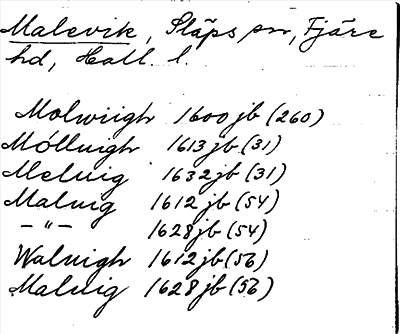 Malevik, Släps sn, Fjäre
hd, Hall. l.
Molwiigh 1600 jb (260)
Mölluigh 1613 jb (31)
Meluig 1632 jb (31)
Maluig 1612 jb (54)
—"— 1628 jb (54)
Waluigh 1612 jb (56)
Maluig 1628 jb (56)